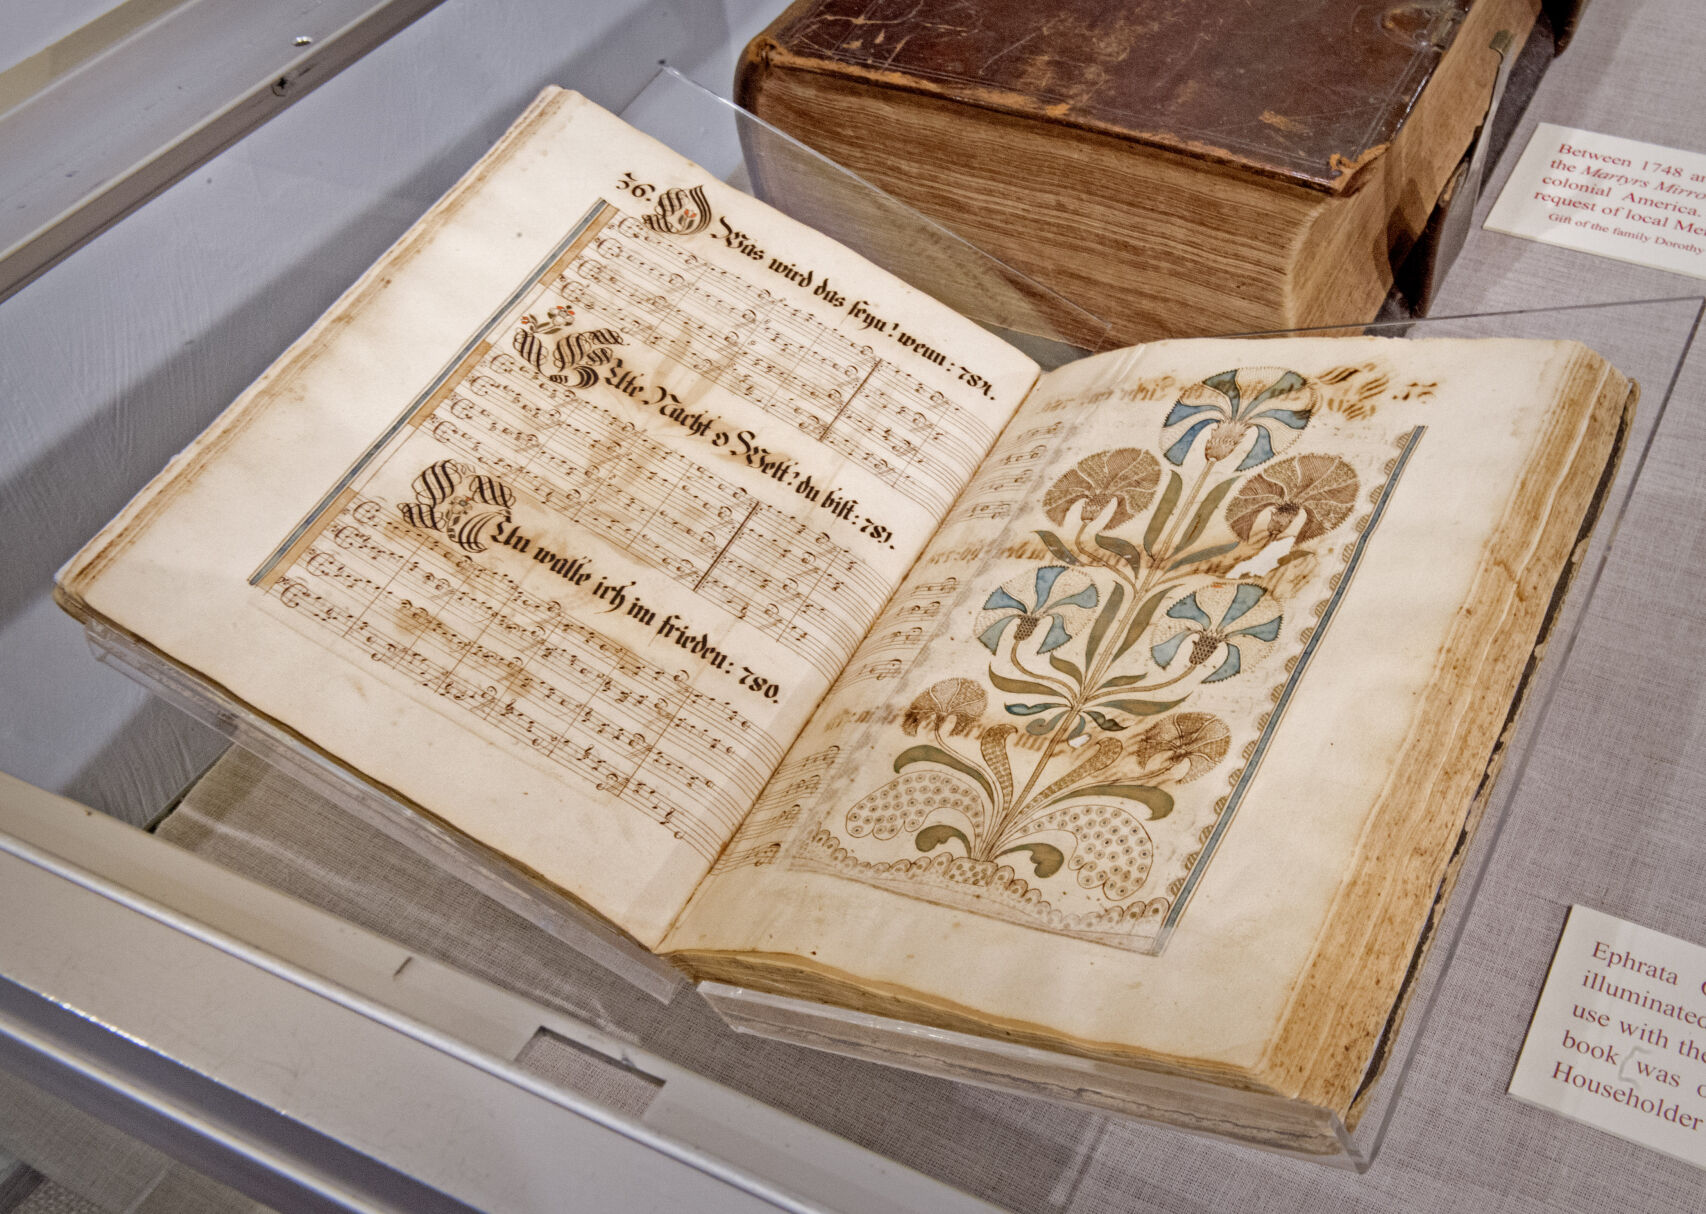 56.
Was wird das seyn! wenn: 784.
Gute Nacht o Welt! du bist: 781.
Nun walle ich im frieden: 780.
57.
Between 1748
the Martyrs
colonial America.
request of local
Gift of the family Dorothy
Ephrata
illuminated
use with the
book was
Householder